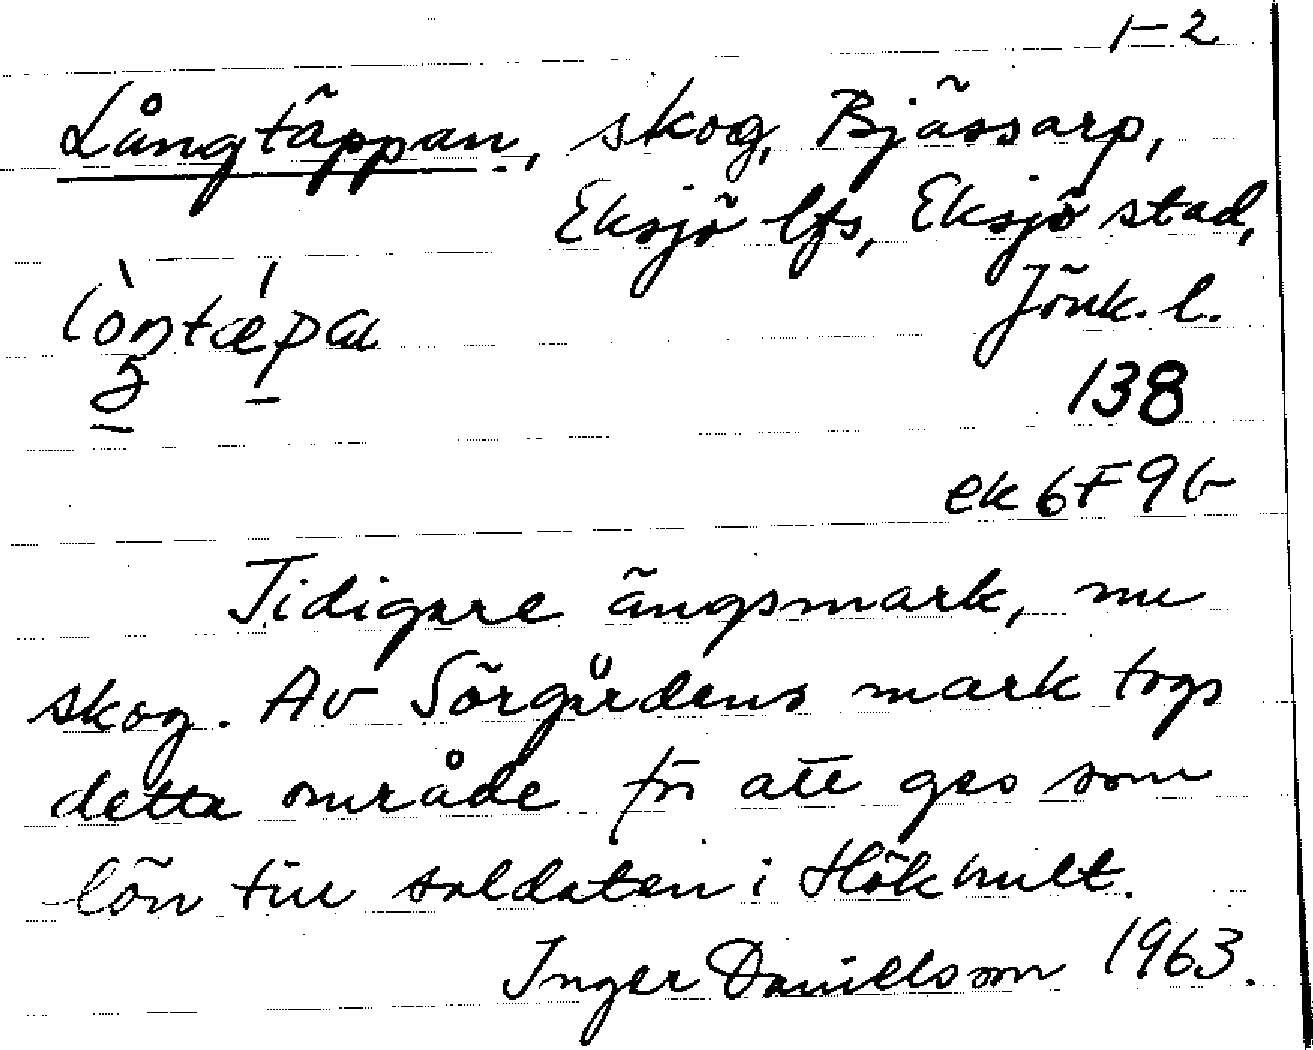 1-2
Långtäppan, skog, Bjässarp,
Eksjö lfs, Eksjö stad,
Jönk. l.
138
ek 6F9b
Tidigare ängsmark, nu
skog. Av Sörgårdens mark togs
detta område för att ges som
lön till soldaten i Hökhult.
Inger Danielsson 1963.